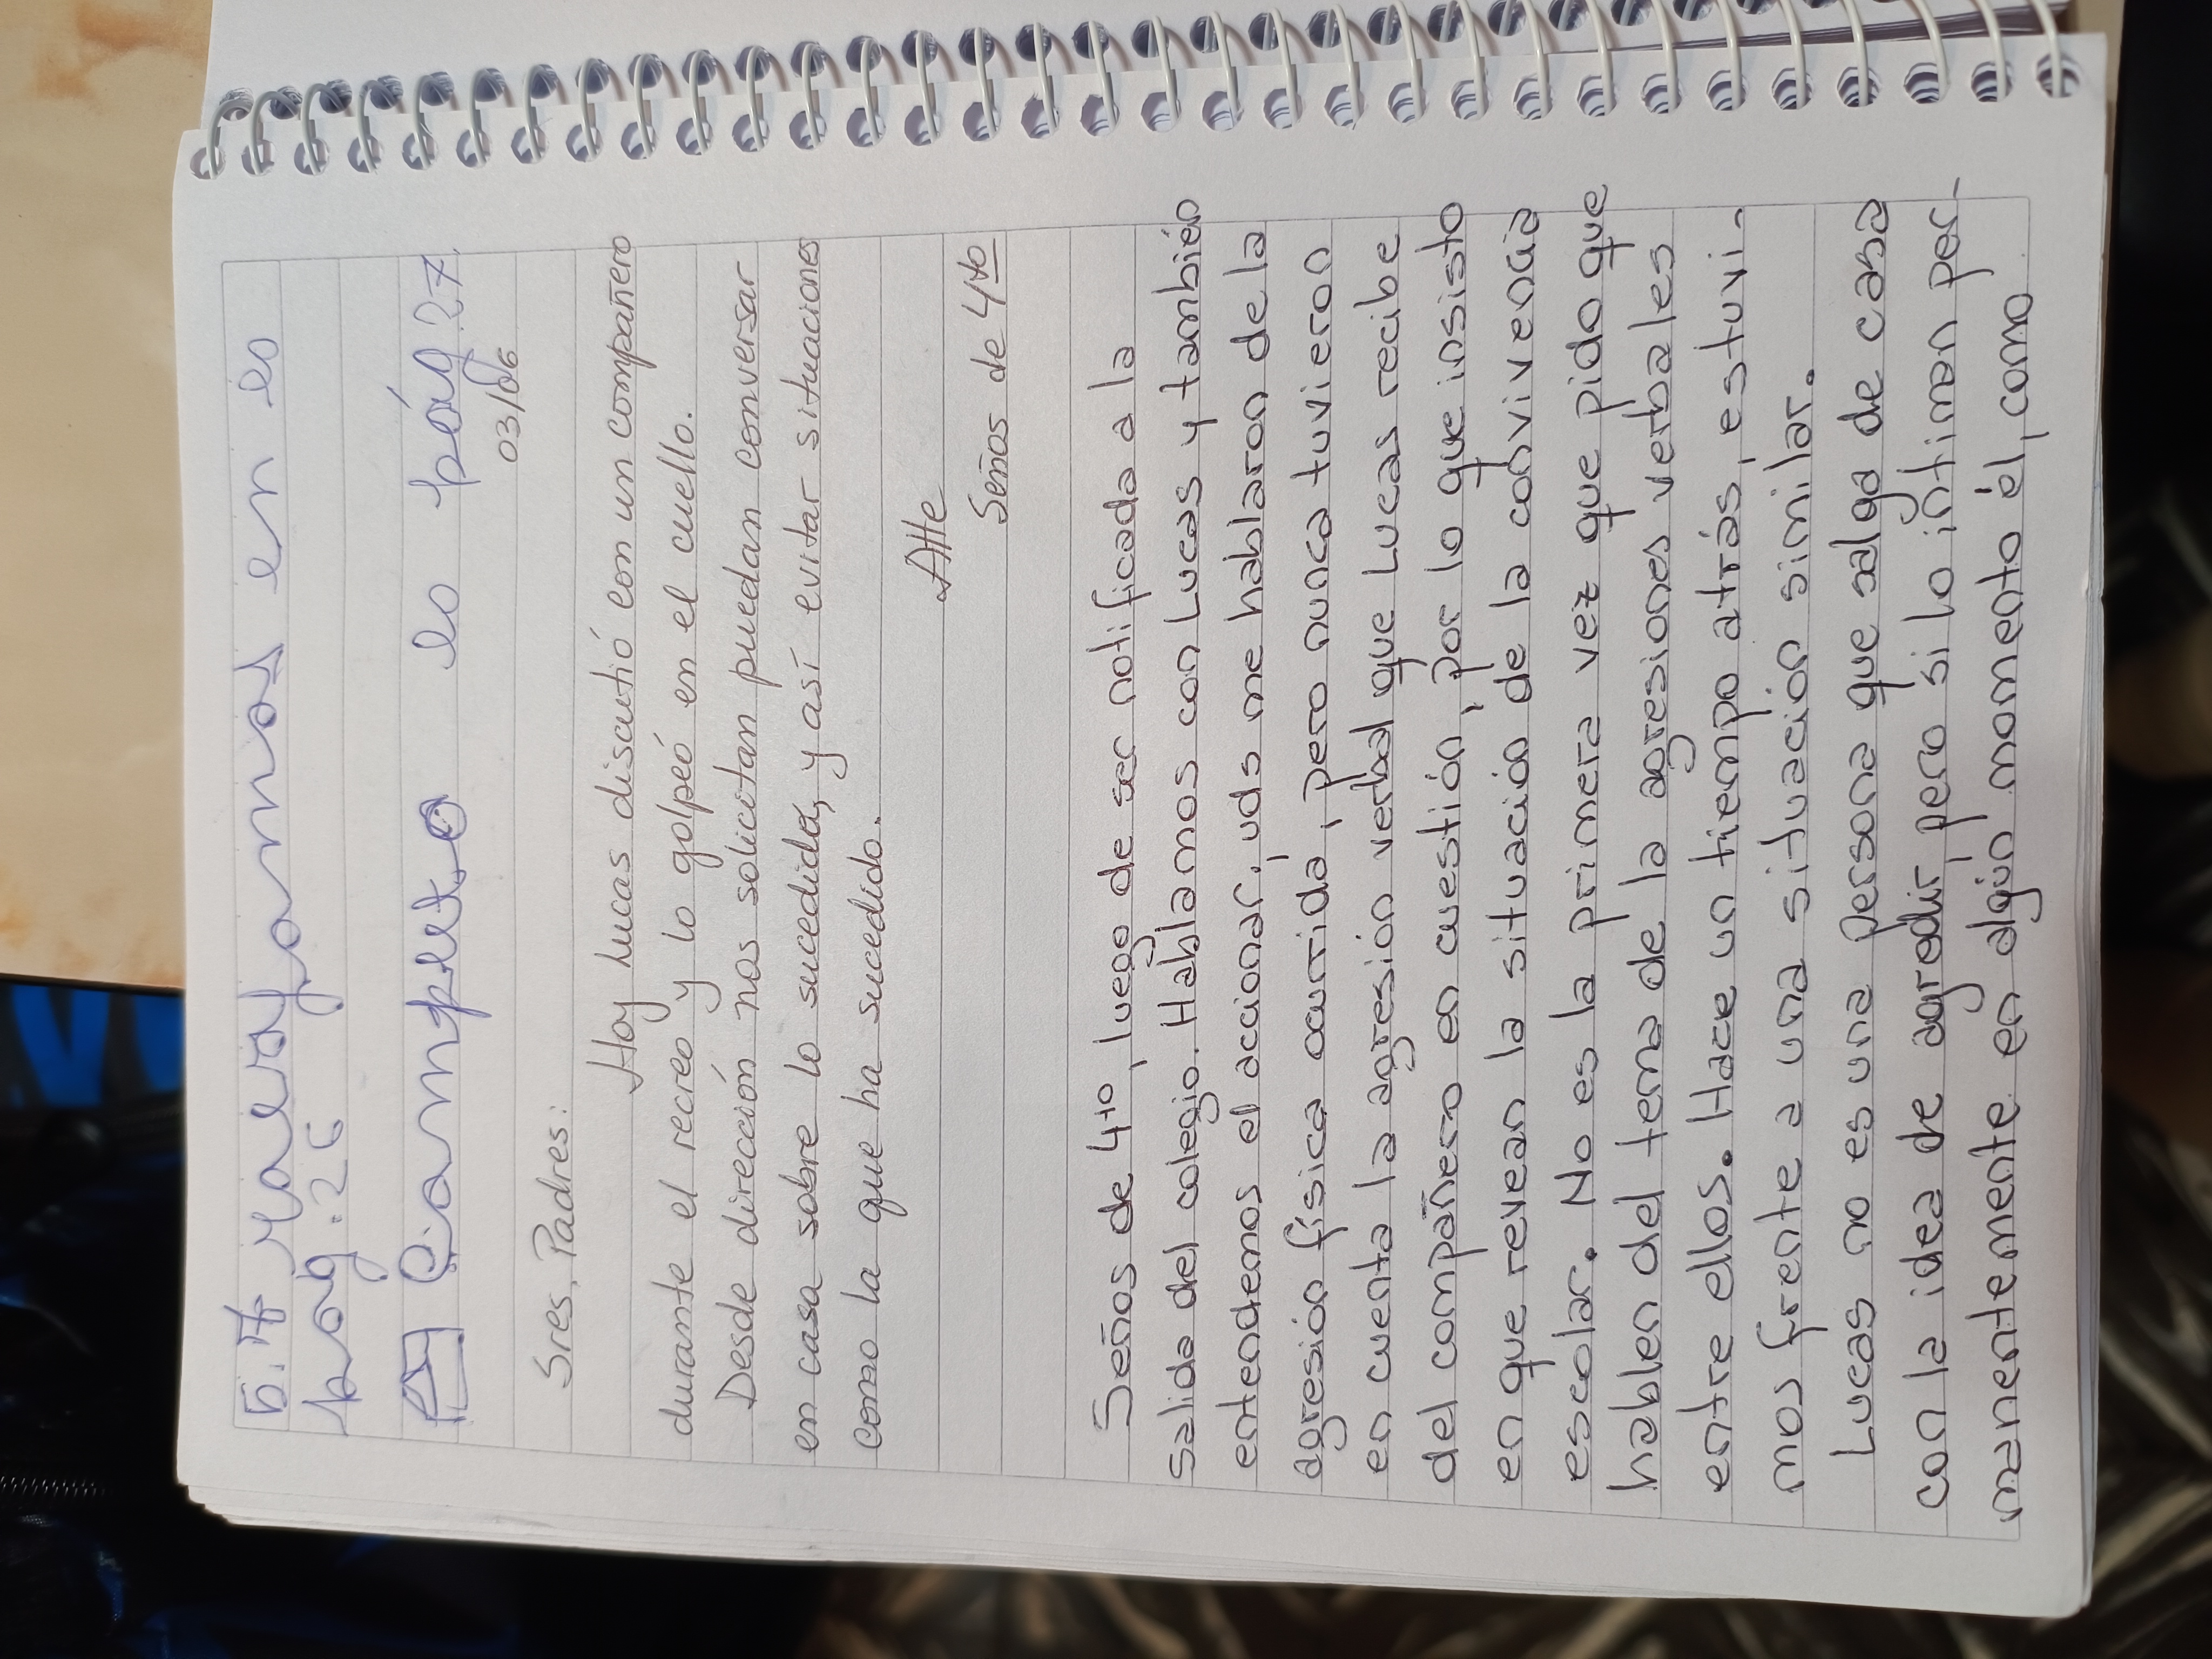 5. Trabajamos en la
pág. 26
Completo la pág 27
03/06
Sres. Padres:
Hoy Lucas discutió con un compañero
durante el recreo y lo golpeó en el cuello.
Desde dirección nos solicitan puedan conversar
en casa sobre lo sucedido, y así evitar situaciones
como la que ha sucedido.
Atte
Seños de 4to
Seños de 4to, luego de ser notificada a la
salida del colegio. Hablamos con Lucas y también
entendemos el accionar, uds me hablaron de la
agresión física ocurrida, pero nunca tuvieron
en cuenta la agresión verbal que Lucas recibe
del compañero en cuestión, por lo que insisto
en que revean la situación de la convivencia
escolar. No es la primera vez que pido que
hablen del tema de la agresiones verbales
entre ellos. Hace un tiempo atrás, estuvi-
mos frente a una situación similar.
Lucas no es una persona que salga de casa
con la idea de agredir, pero si lo intiman per-
manentemente en algún momento él, como